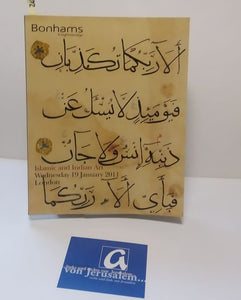 Bonhams
ألا ربكما تكذبان
فيومئذ لا يسئل عن
ذنبه إنس ولا جان
Islamic and Indian Art
Wednesday 19 January 2011
London
فبأي ألاء ربكما
von Jerusalem...